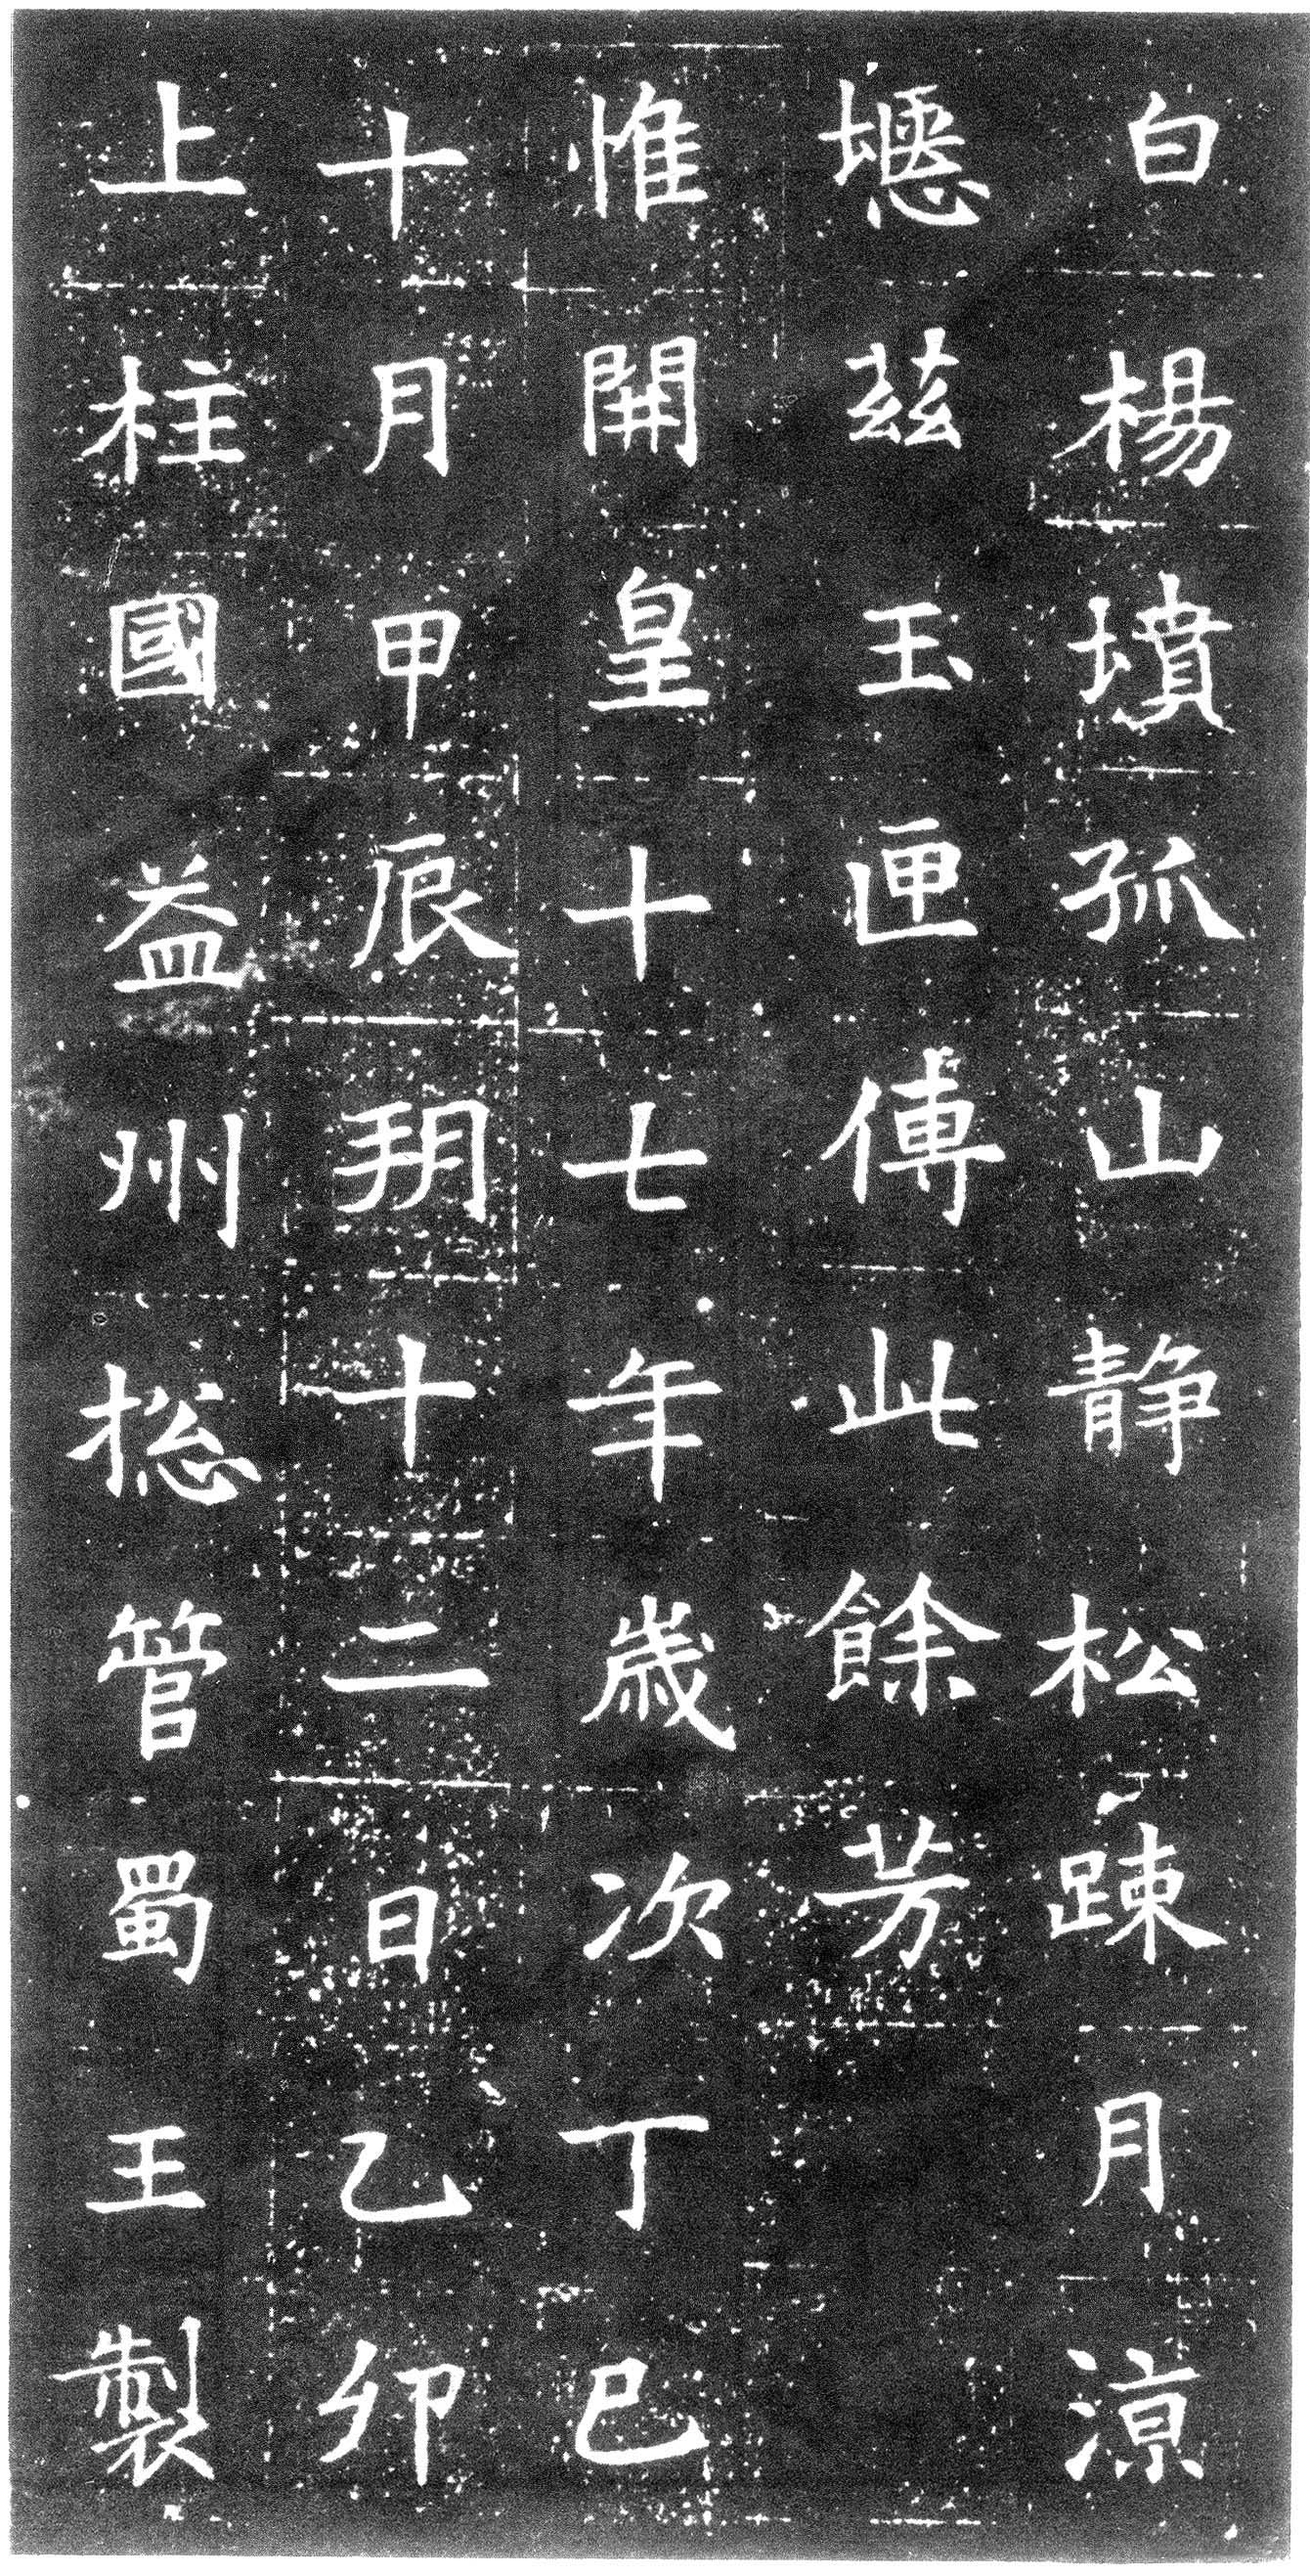 白楊墳孤山静松踈月涼
壥茲玉匣傅此餘芳
惟開皇十七年歲次丁巳
十月甲辰朔十二日乙卯
上柱國益州揔管蜀王製